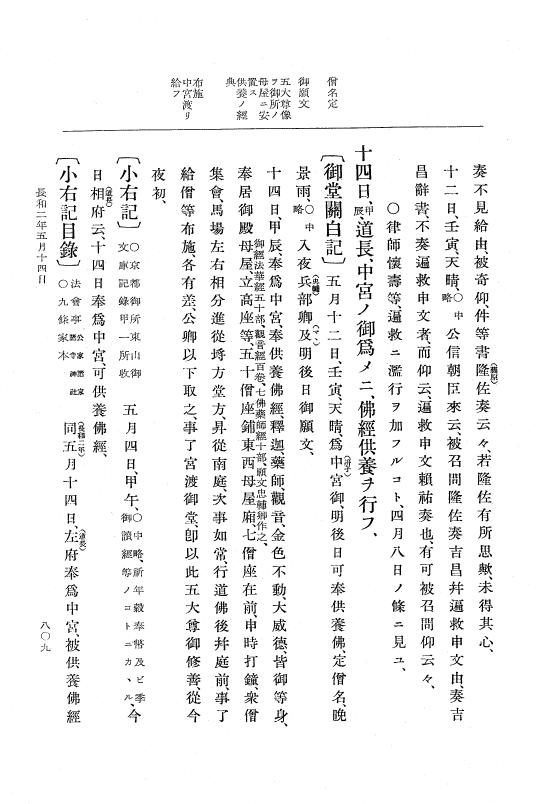 僧名定
御願文
五大尊像
ヲ御所ノ
母屋ニ安
置ス
供養ノ經
典
布施
中宮渡リ
給フ
奏不見給由、被奇仰、件等書隆佐奏云々、若隆佐有所思歟、未得其心、
(藤原)
十二日、壬寅、天晴、○中略 公信朝臣來云、被召問隆佐奏吉昌幷遍救申文由、奏吉
昌辭書、不奏遍救申文者、而仰云、遍救申文賴祐奏也、有可被召問仰云々、
○律師懷壽等、遍救ニ濫行ヲ加フルコト、四月八日ノ條ニ見ユ、
十四日、甲辰、道長、中宮ノ御爲メニ、佛經供養ヲ行フ、
〔御堂關白記〕 五月十二日、壬寅、天晴、爲中宮御、明後日可奉供養佛、定僧名、晚
(妍子)
景雨、○中略 入夜兵部卿及明後日御願文、
(忠輔) (マヽ)
十四日、甲辰、奉爲中宮、奉供養佛經、釋迦、藥師、觀音、金色不動、大威德、皆御等身、
御經法華經五十部、觀音經百卷、七佛藥師經十部、願文忠輔卿作之、
奉居御殿母屋、立高座等、五十僧座鋪東西母屋廂、七僧座在前、申時打鐘、衆僧
集會、馬場左右相分進從埓方堂方、昇從南庭、次事如常、行道佛後幷庭前、事了
給僧等布施、各有差、公卿以下取之、事了宮渡御堂、卽以此五大尊御修善、從今
夜初、
〔小右記〕 ○京都御所東山御文庫記錄甲一所收 五月四日、甲午、○中略、祈年穀奉幣及ビ季御讀經等ノコトニカヽル、今
日相府云、十四日奉爲中宮、可供養佛經、
(道長)
〔小右記目錄〕 法會亭 公家 諸家 諸寺 神社 ○九條家本 同五月十四日、左府奉爲中宮、被供養佛經
(長和二年) (道長)
長和二年五月十四日
八〇九